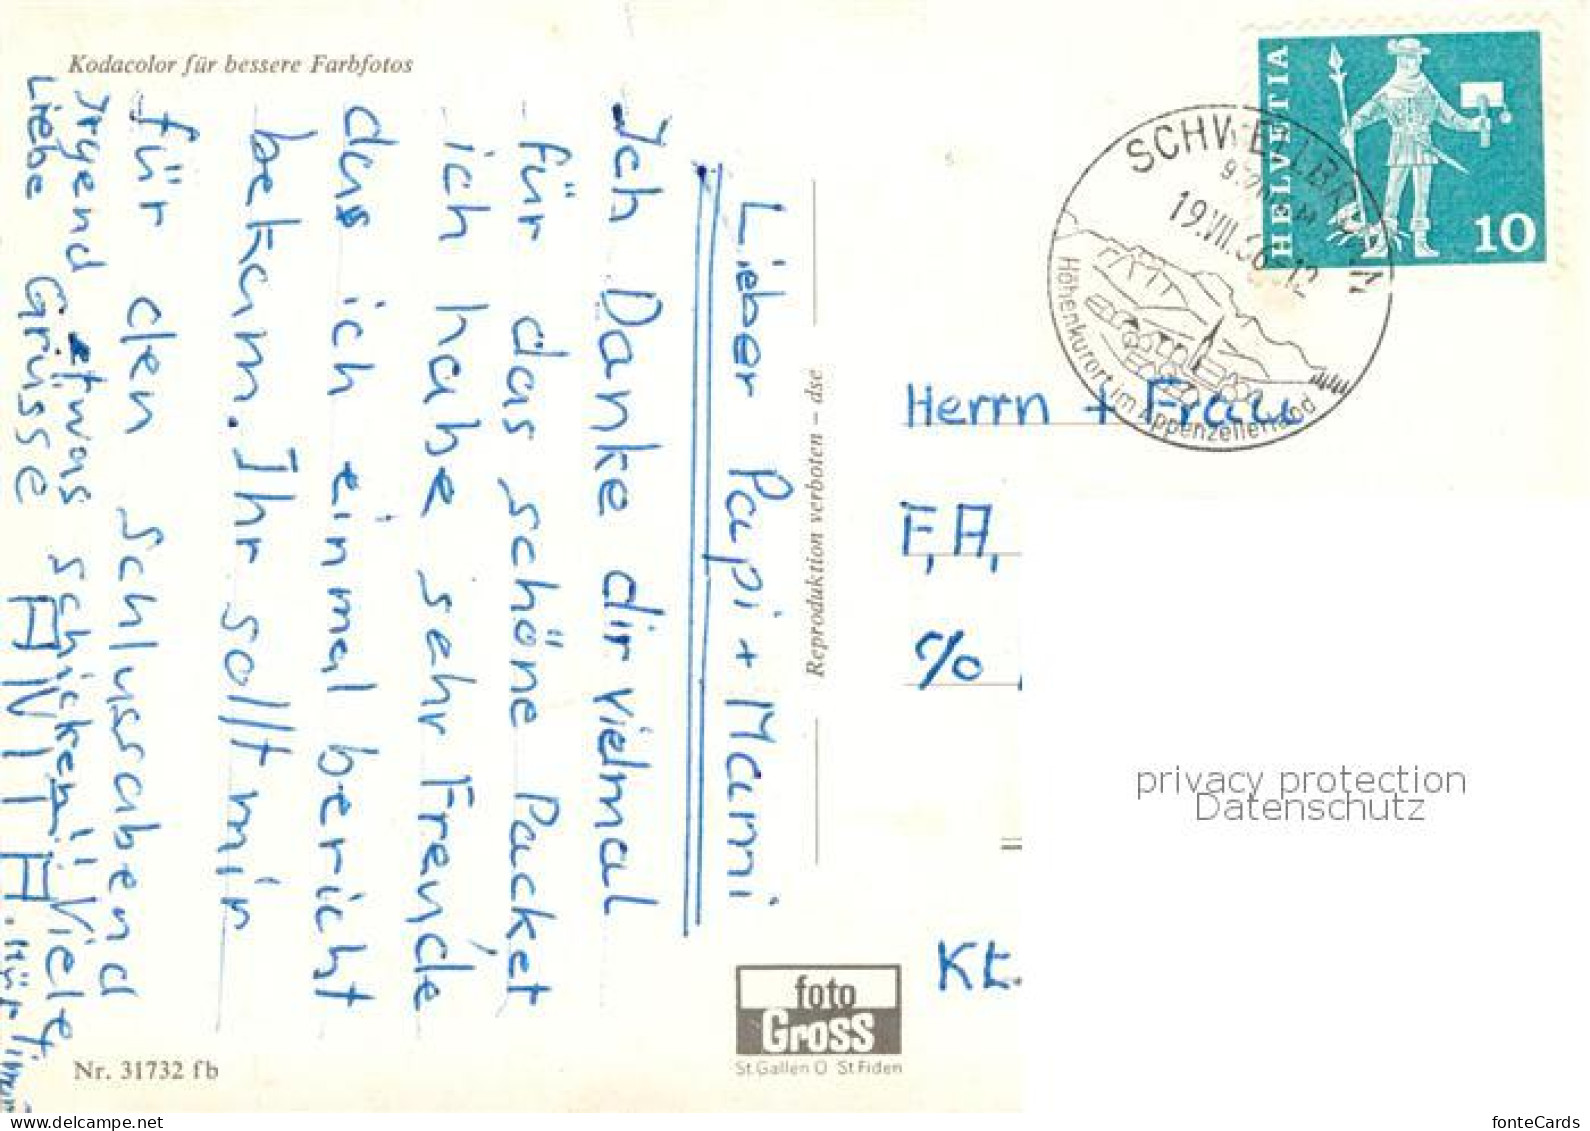 Kodacolor für bessere Farbfotos
Lieber Papi + Mammi
Ich Danke dir vielmal
für das schöne Packet
ich habe sehr Freude
das ich einmal bericht
bekam. Ihr sollt mir
für den Schlussabend
Irgend etwas schicken!! Viele
Liebe Grüsse ANITA.
Nr. 31732 fb
Reproduktion verboten – dse
foto
Gross
St.Gallen O St Fiden
HELVETIA
10
SCHWELLBRUNN
19.VII.66-12
Höhenkurort im Appenzellerland
Herrn + Frau
F, A,
c/o
Kt.
privacy protection
Datenschutz
www.delcampe.net
fonteCards